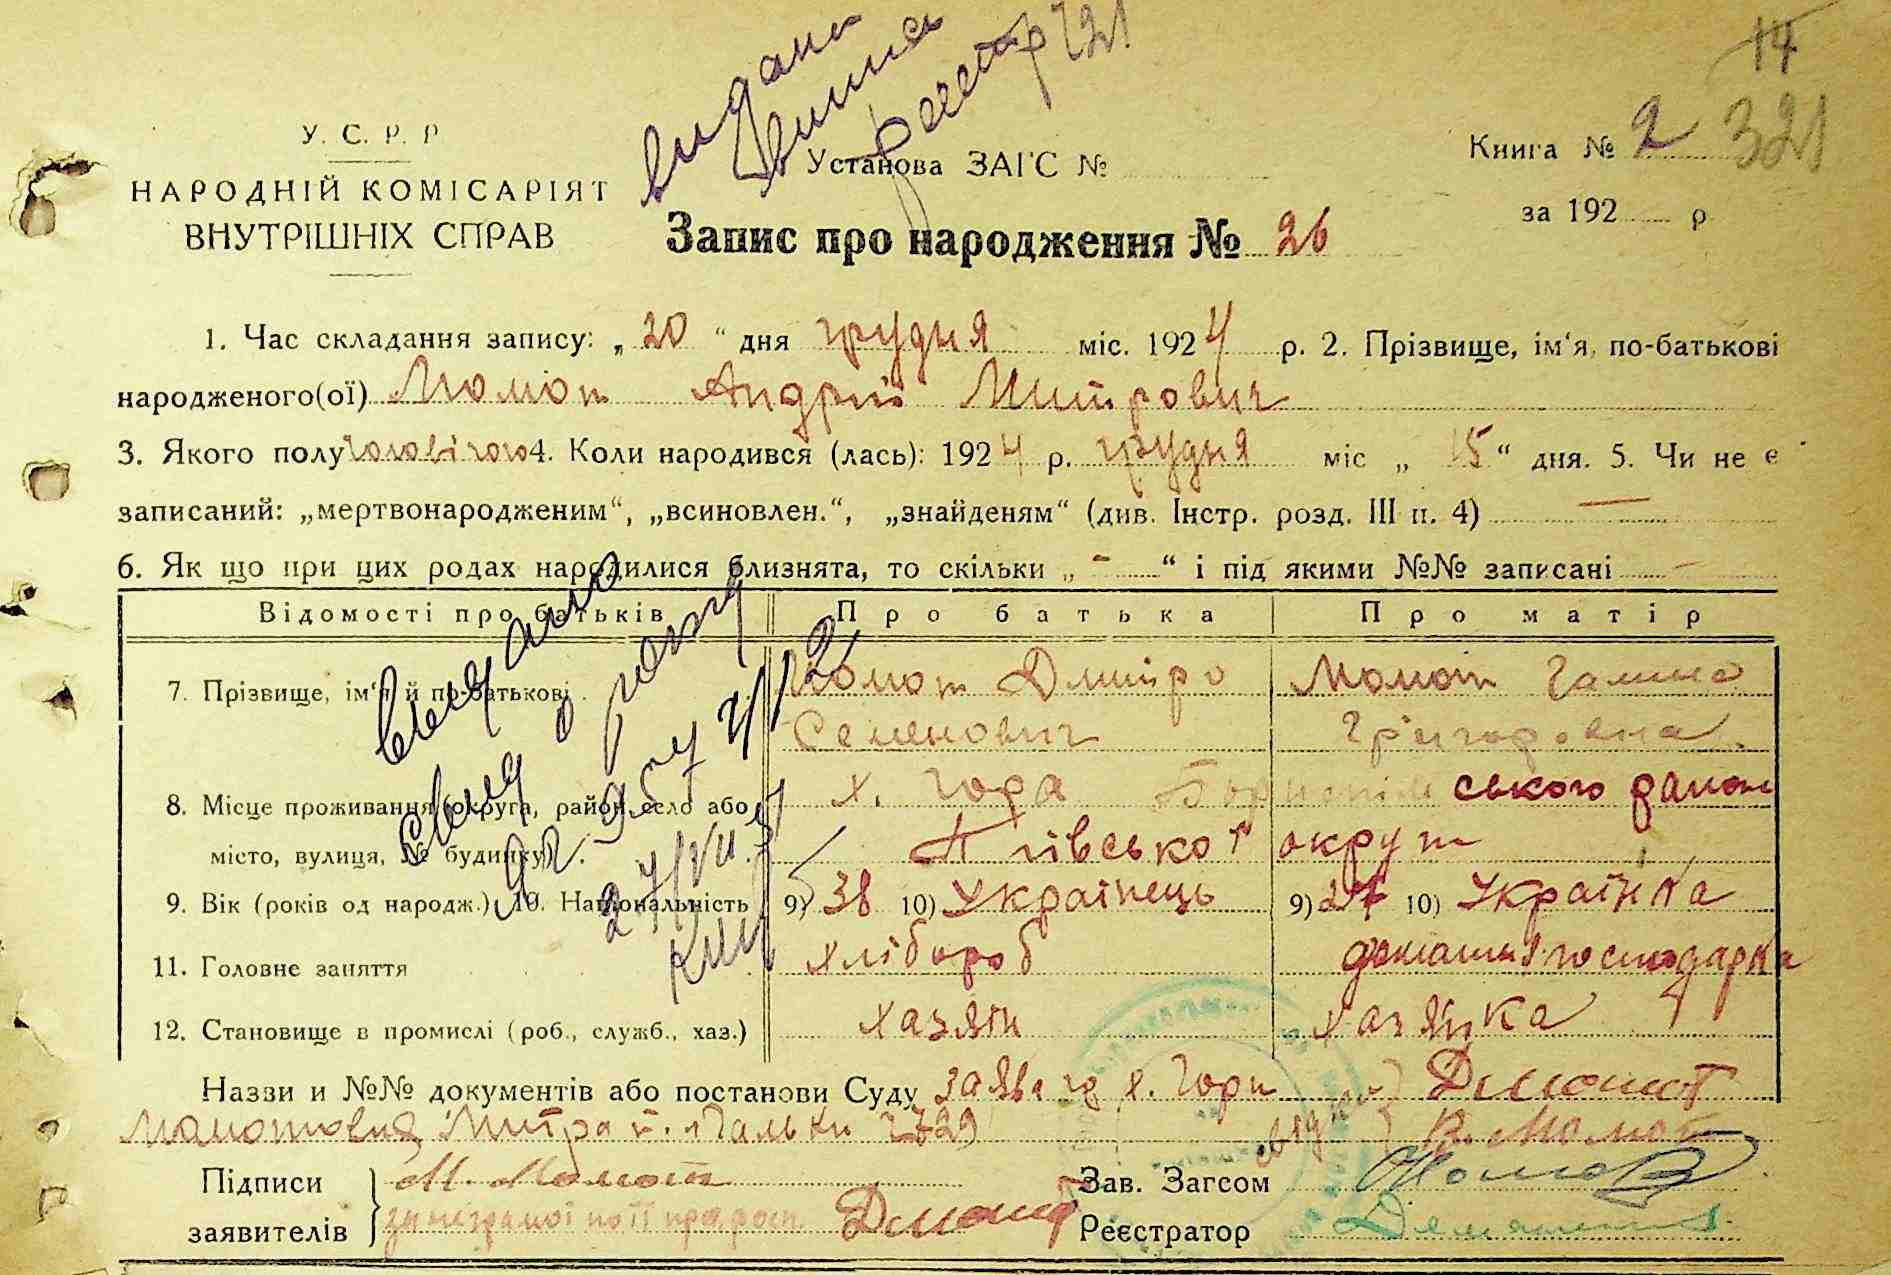 14
321
видана
виписка
реєстр 721
У. С. Р. Р
НАРОДНІЙ КОМІСАРІЯТ
ВНУТРІШНІХ СПРАВ
Установа ЗАГС №
Книга № 2
за 192 р
Запис про народження № 26
1. Час складання запису: „ 20 “ дня грудня міс. 1924 р. 2. Прізвище, ім‘я, по-батькові
народженого(ої) Момот Андрій Митрович
3. Якого полу чоловічого 4. Коли народився (лась): 1924 р. грудня міс „ 15 “ дня. 5. Чи не є
записаний: „мертвонародженим“, „всиновлен.“, „знайденям“ (див. Інстр. розд. III п. 4) —
6. Як що при цих родах народилися близнята, то скільки „ - “ і під якими №№ записані -
Відомості про батьків Про батька Про матір
7. Прізвище, ім‘я й по-батькові . Момот Дмитро Момот Галина
Семенович Григоровна
8. Місце проживання (округа, район, село або х. Гора Бориспільського район
місто, вулиця, № будинку) . Київської округи
9. Вік (років од народж.). 10. Національність 9) 38 10) Українець 9) 27 10) Українка
11. Головне заняття хлібороб домашня господарка
12. Становище в промислі (роб., служб., хаз.) хазяїн хазяйка
видано
27/VII 31
Назви и №№ документів або постанови Суду заява гр. х. Гори
Момотовия Митра й Гальки
В. Момот
Підписи
заявителів
М. Момот
за неграмотн
Зав. Загсом
Реєстратор